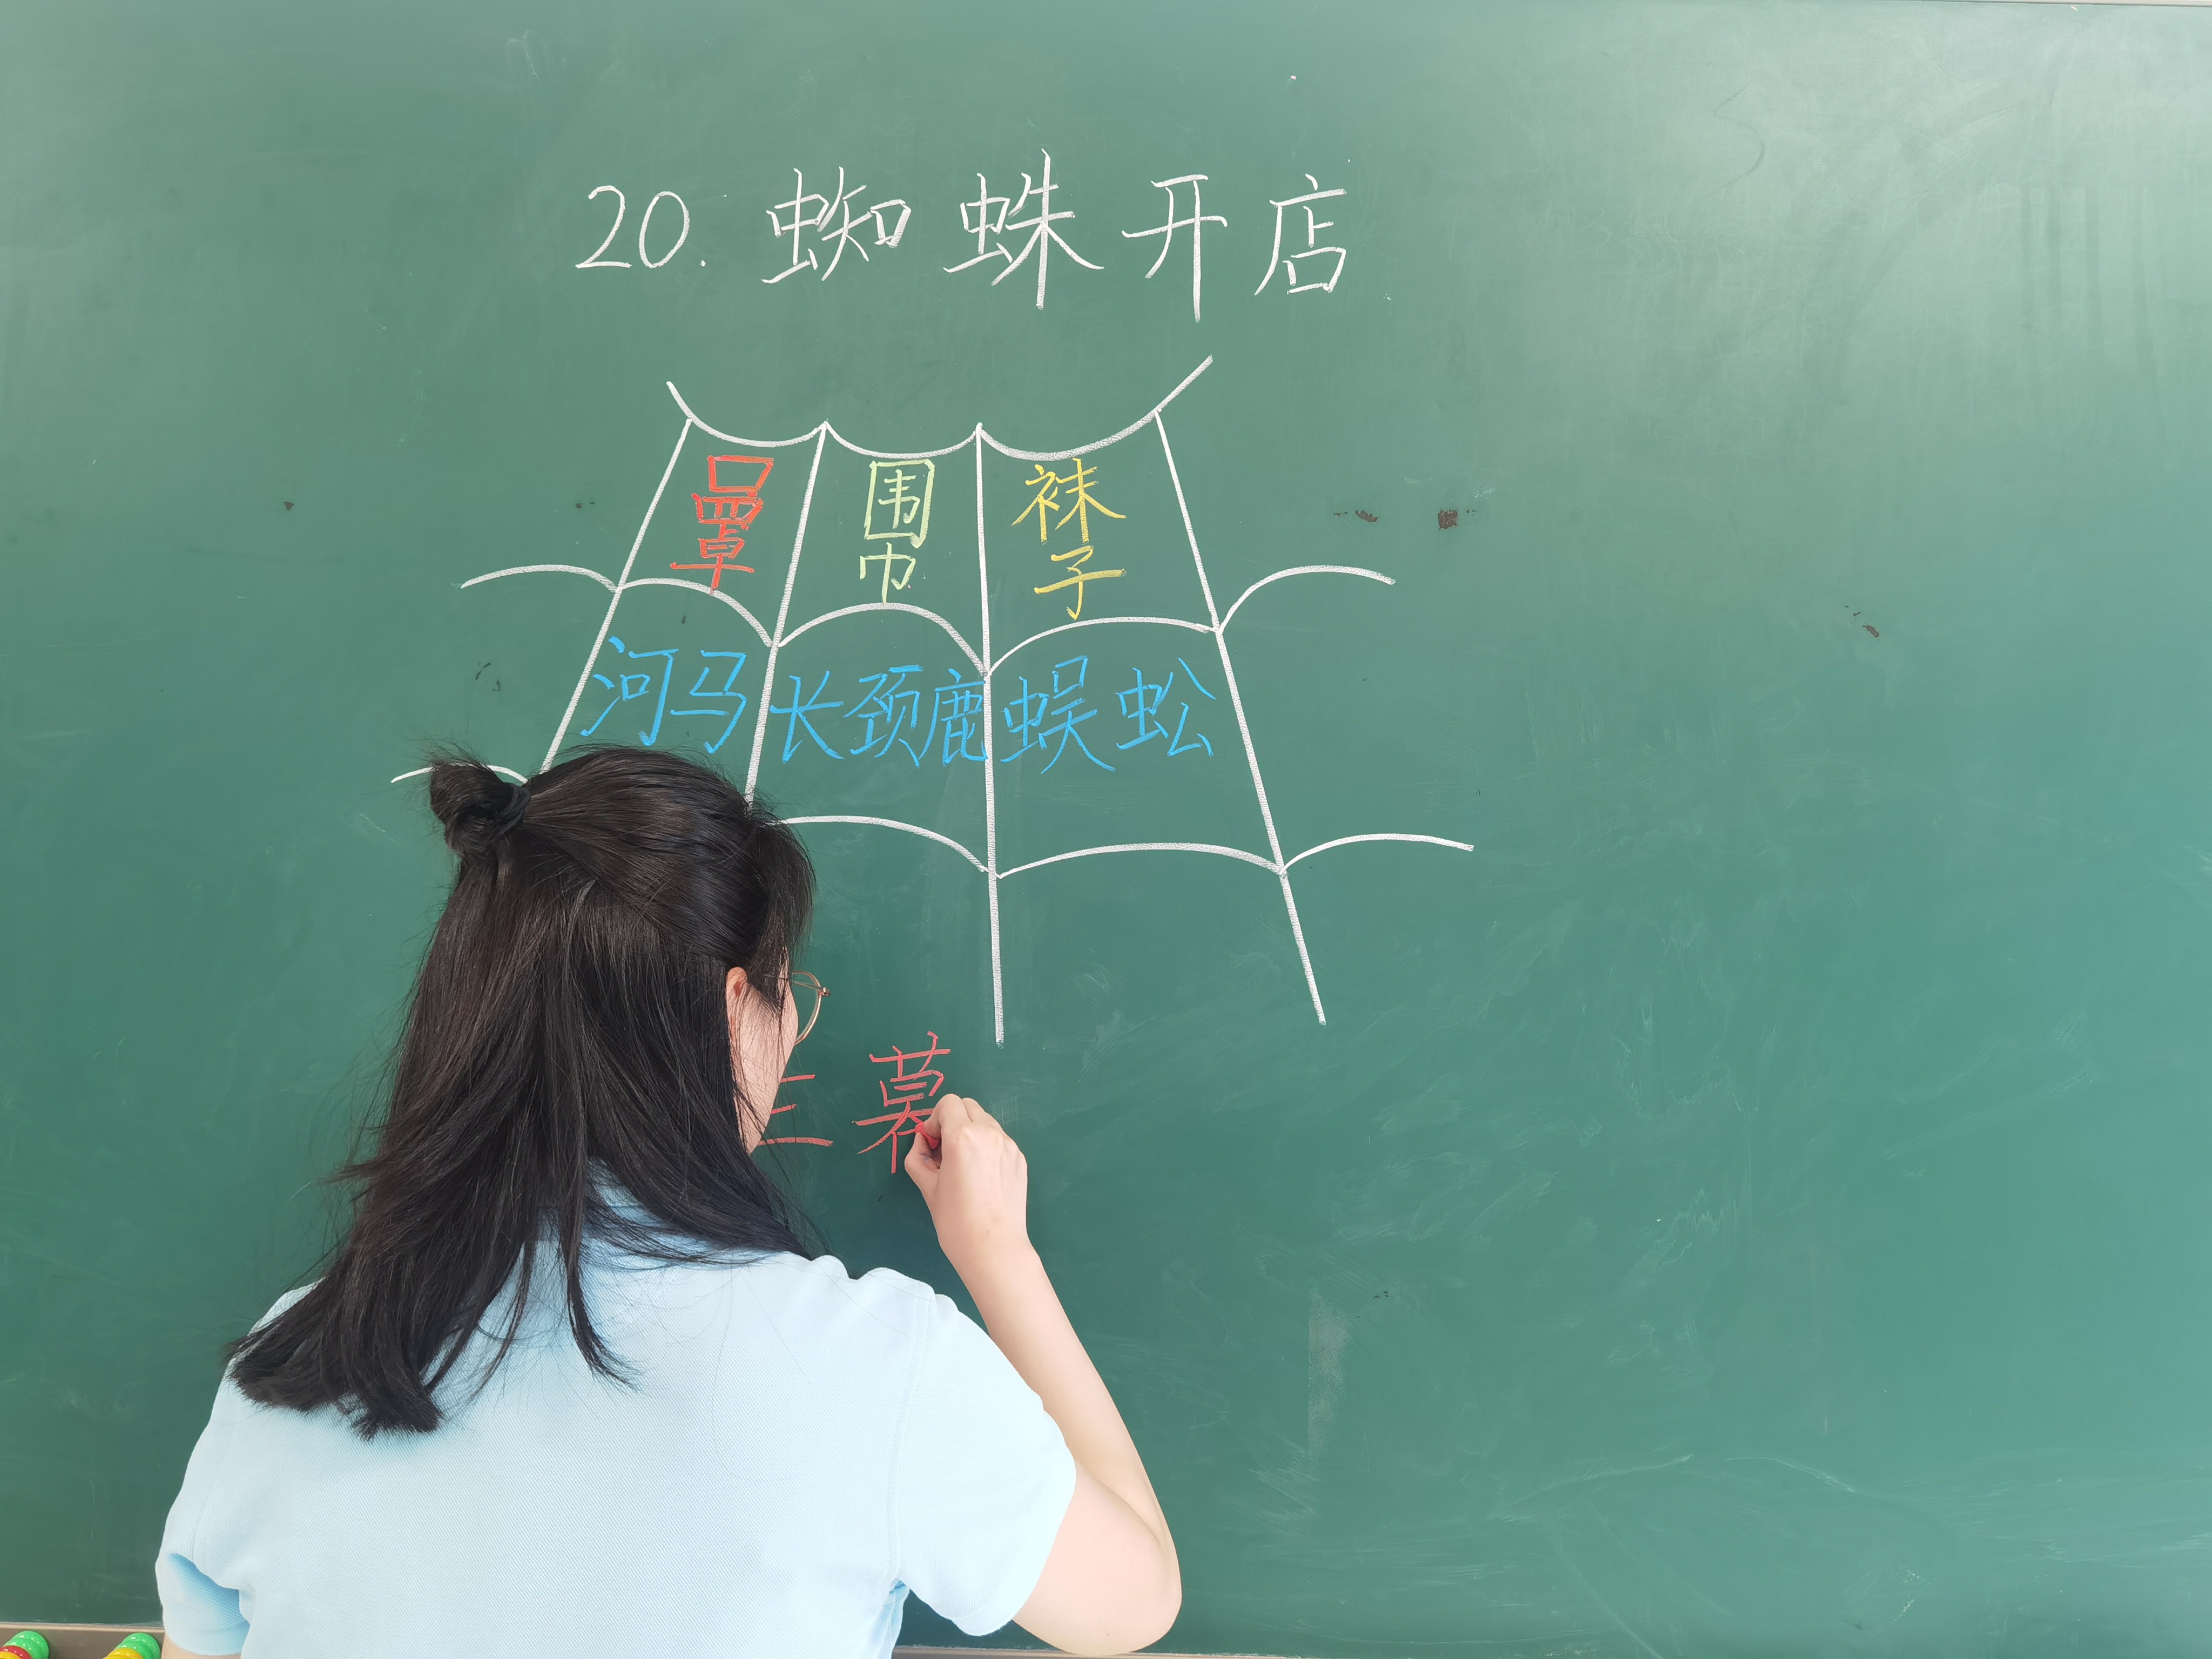 20. 蜘蛛开店
口罩 围巾 袜子
河马 长颈鹿 蜈蚣
三幕